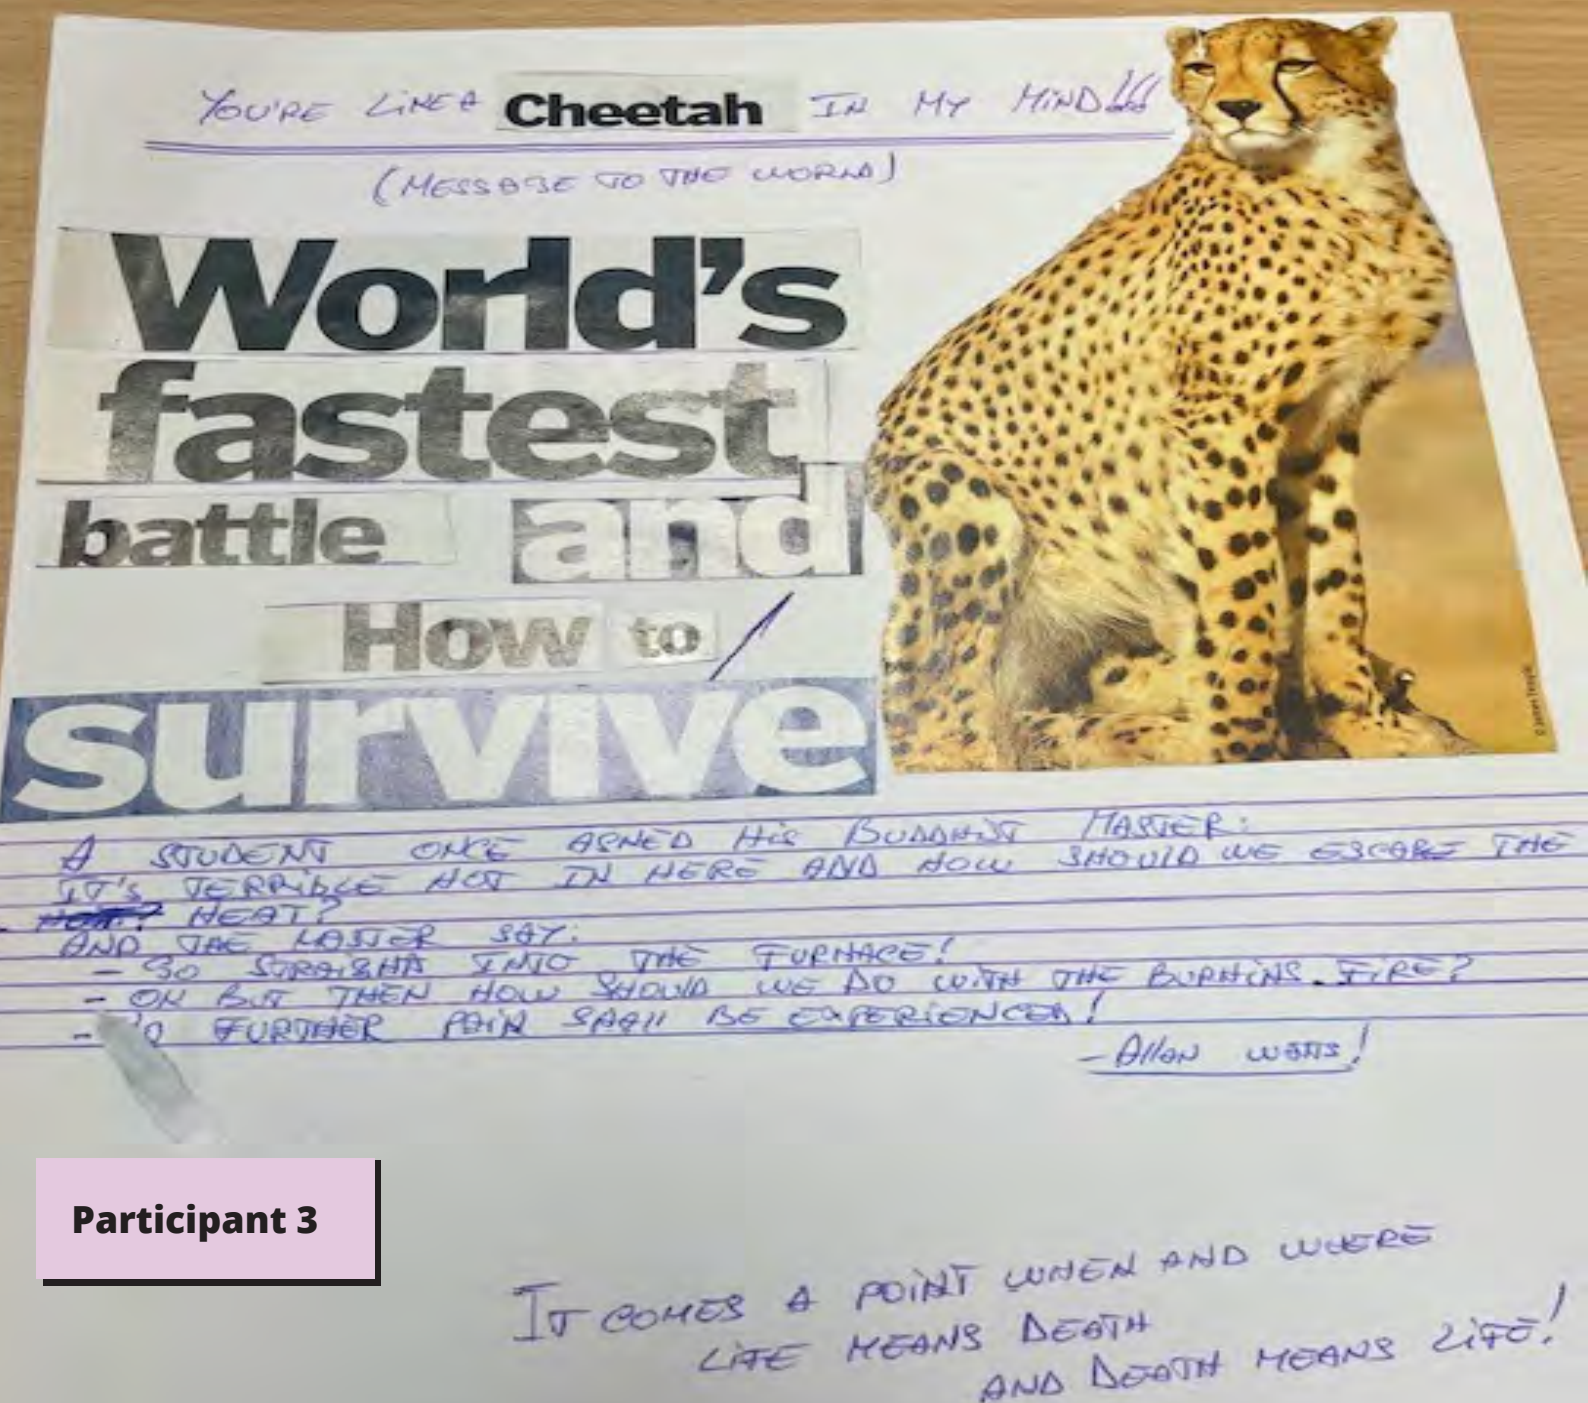 YOU'RE LIKE A Cheetah IN MY MIND!!!
(MESSAGE TO THE WORLD)
World's
fastest
battle and
How to /
survive
A STUDENT ONCE ASKED HIS BUDDHIST MASTER:
IT'S TERRIBLE HOT IN HERE AND HOW SHOULD WE ESCAPE THE
HOT? HEAT?
AND THE MASTER SAY:
- GO STRAIGHT INTO THE FURNACE!
- OK BUT THEN HOW SHOULD WE DO WITH THE BURNING FIRE?
- FURTHER PAIN SHALL BE EXPERIENCED!
- Allan Watts!
Participant 3
IT COMES A POINT WHEN AND WHERE
LIFE MEANS DEATH
AND DEATH MEANS LIFE!